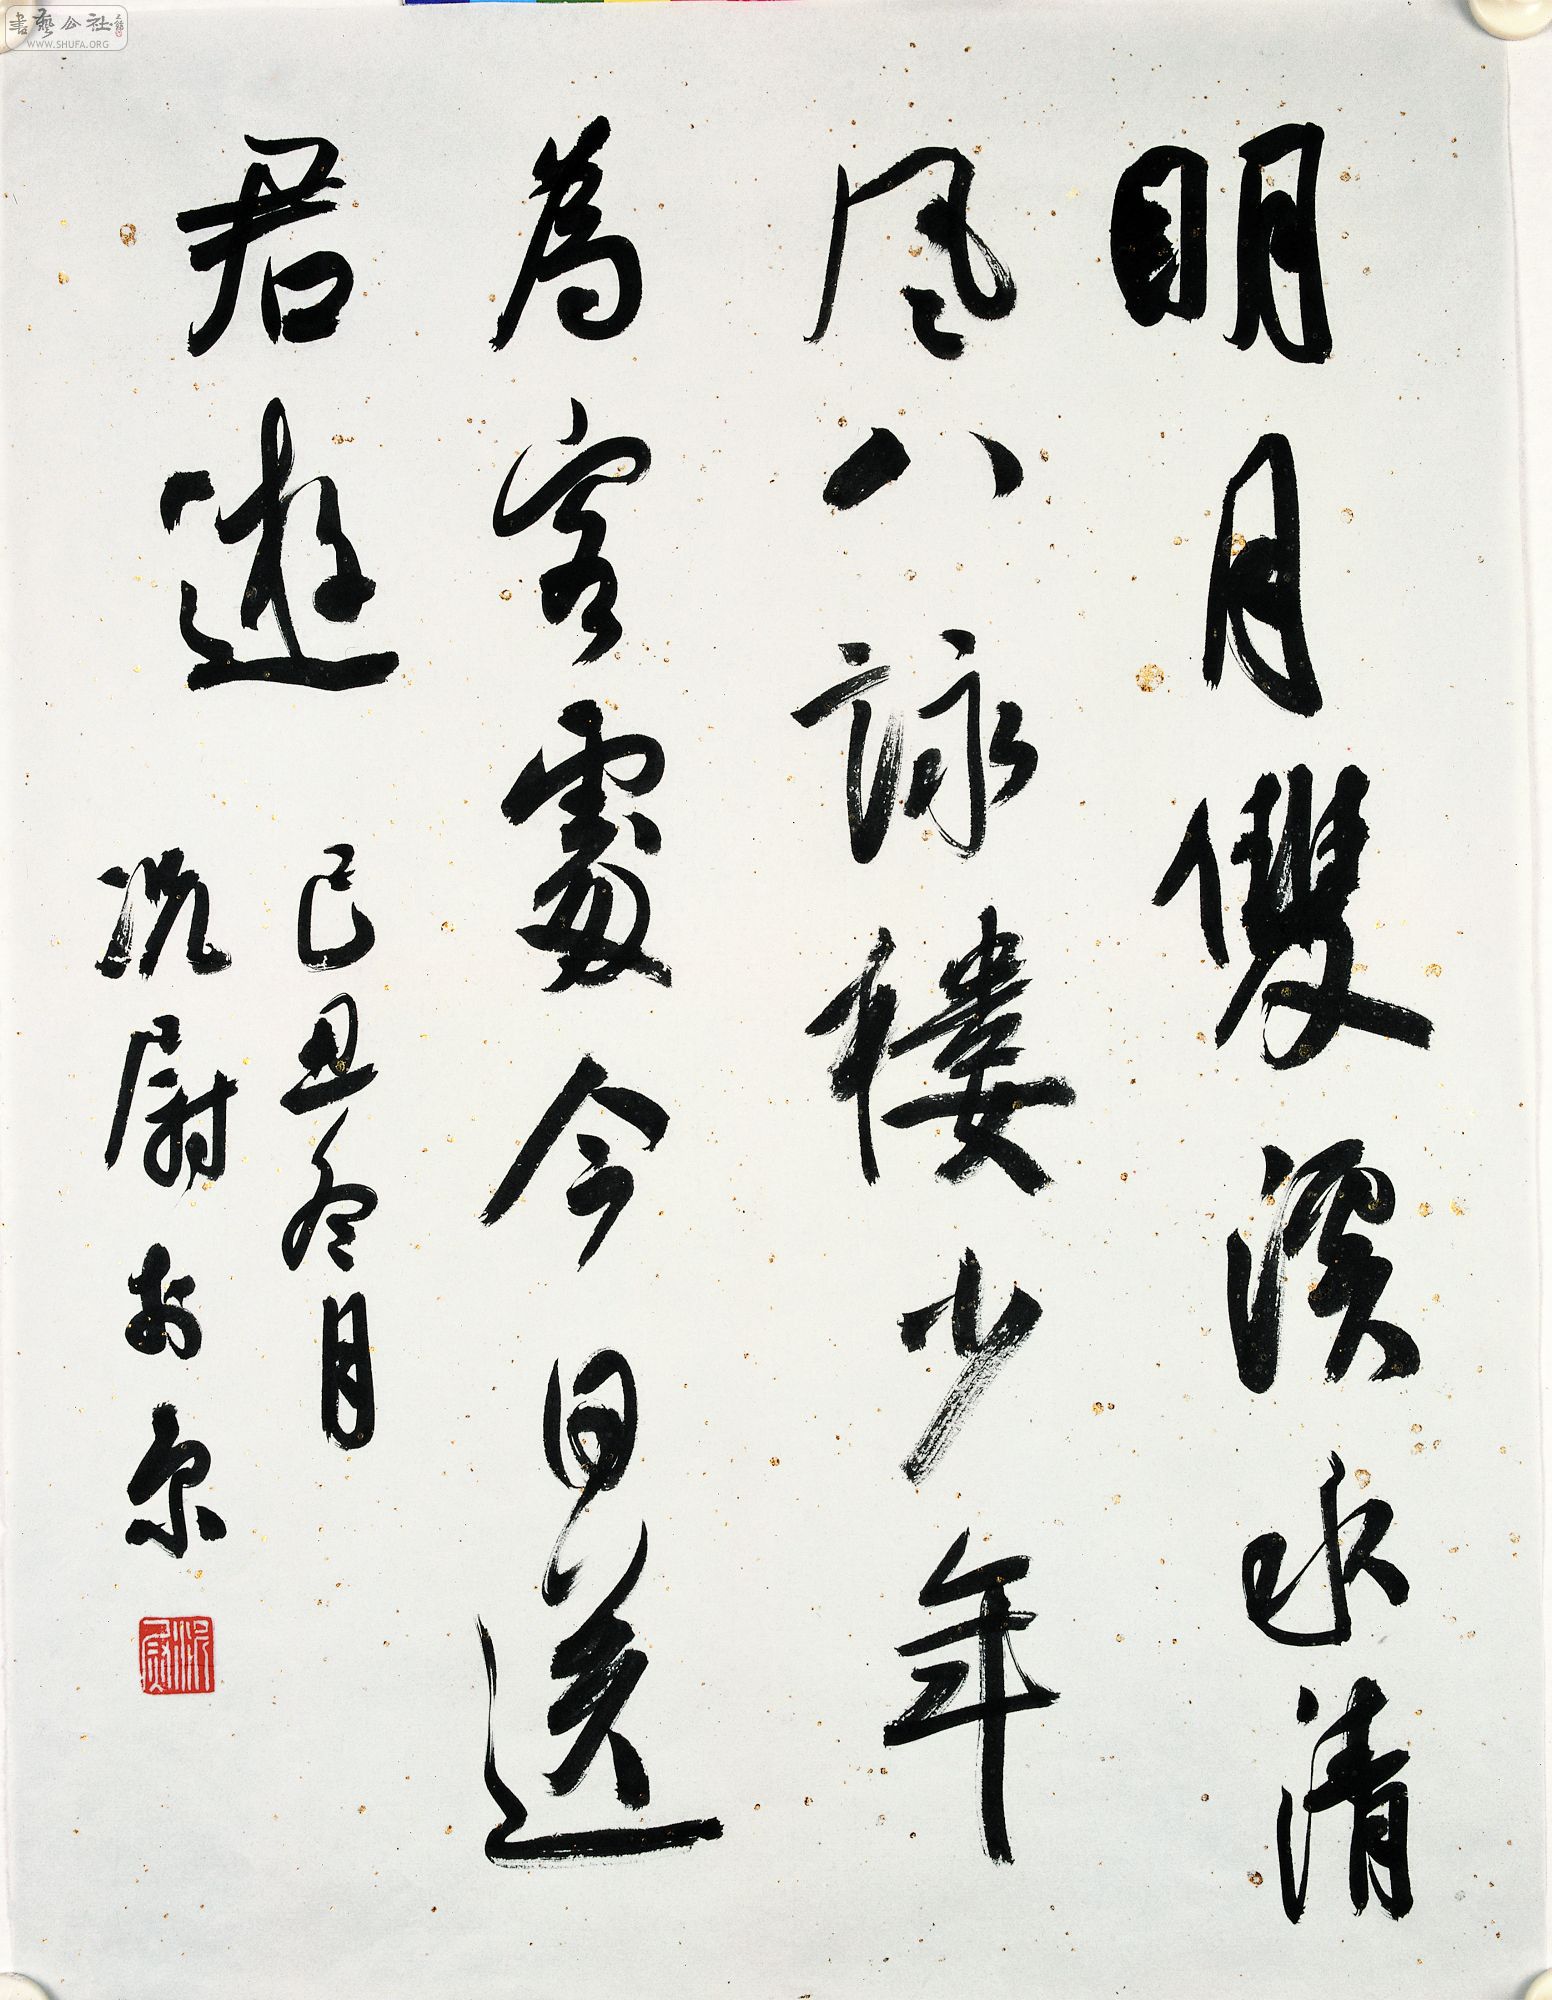 明月雙溪水清
风八詠樓少年
為客處今日送
君遊
己丑冬月
沈尉於京
書藝公社
WWW.SHUFA.ORG